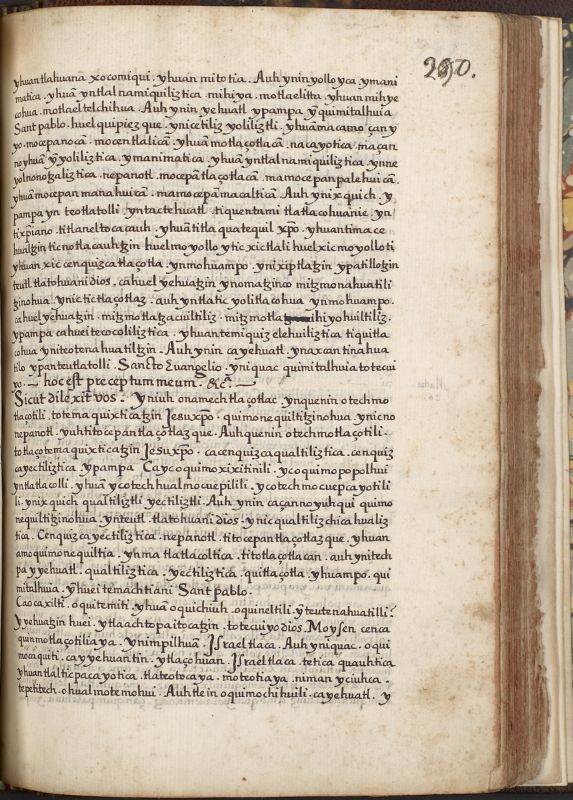 290.
yhuan tlahuana xocomiqui . yhuan mitotia . Auh ynin yolloyca ymani
matica . yhuã yntlal namiquiliztica . mihiya . motlaelitta . yhuan mihye
cohua . motlaeltelchihua . Auh ynin yehuatl ypampa ỹ quimitalhuia
Sant pablo . huel quipiez que . ynicetiliz yoliliztli . yhuã macamo çan y
yo . mocepanocã . mocentlalicã . yhuã motlaçotlacã . nacayotica . maçan
noyhuã ỹ yoliliztica . ymanimatica . yhuã yntlalnamiquiliztica . ynne
yolnonotzaliztica . nepanotl . mocepãtlaçotlacã . mamocepanpalehuicã .
yhuã mocepan manahuicã . mamocepãmacalticã . Auh ynixquich . y
pampa yn teotlatolli . yntactehuatl . tiquentami tlatlacohuanie . yn
tixp̃iano . titlaneltocacauh . yhuã titlaquatequil xp̃o . yhuantimace
hualtzin ticnotlacauhtzin huelmoyollo ytic xictlali huelxicmoyolloti
yhuan xic cenquizcatlaçotla . ynmohuampo . ynixiptlatzin ypatillotzin
teutl tlatohuani dios . cahuel yehuatzin ynomatzinco mitzmonahuatili
tzinohua . ynic tictlaçotlaz . auh yntlatic yolitlacohua ynmohuampo .
cahuel yehuatzin . mitzmotlatzacuiltiliz . mitzmotla ihiyohuiltiliz .
ypampa cahuei tecocoliliztica . yhuantemiquizelehuiliztica tiquitla
cohua yniteotenahuatiltzin . Auh ynin ca yehuatl . ynaxcantinahua
tilo ypanteutlatolli . Sancto Euangelio . yniquac quimitalhuia totecui
yo . — hoc est preceptum meum . &c̃ . —
Sicut dilexit vos . Yniuh onamechtlaçotlac . ynquenin otechmo
tlaçotili . totemaquixticatzin Jesu xp̃o . quimonequiltitzinohua . ynicno
nepanotl . yuhtitocepantlaçõtlaz que . Auh quenin otechmotlaçotili .
totlaçotemaquixticatzin Jesu xp̃o . cacenquizcaqualtiliztica . cenquiz
cayectiliztica ypampa Cayc oquimoxixitinili . ycoquimopopolhui
yntlatlacolli . yhuã ycotechhualmocuepilili . ycotechmocuepcayotili
li . ynixquich qualtiliztli yectiliztli . Auh ynin caçannoyuhqui quimo
nequiltitzinohua . ynteutl . tlatohuani dios . ynic qualtilizchicahualiz
tica . Cenquizca yectiliztica . nepanotl . titocepantlaçotlazque . yhuan
amo quimonequiltia . ynma tlatlacoltica . titotlaçotlacan . auh ynitech
pa yyehuatl . qualtiliztica . yectiliztica . quitlaçotla . yhuampo . qui
mitalhuia . yhuei temachtiani Sant pablo .
Caocaxilti . oquitemiti . yhuã oquichiuh . oquineltili . ỹteutenahuatilli?
Yyehuatzin huei . ytlaachtopaitocatzin . totecuiyo dios . Moysen cenca
quinmotlaçotiliaya . ynimpilhuã Israel tlaca . Auh yniquac . oqui
mocaquiti . ca yyehuantin . ytlaçohuan . Israel tlaca . tetica quauhtica
yhuan tlaltic pacayotica . tlateotocaya . moteotiaya . niman yciuhca .
tepetitech . ohualmotemohui . Auh tlein oquimochihuili . ca yehuatl . y